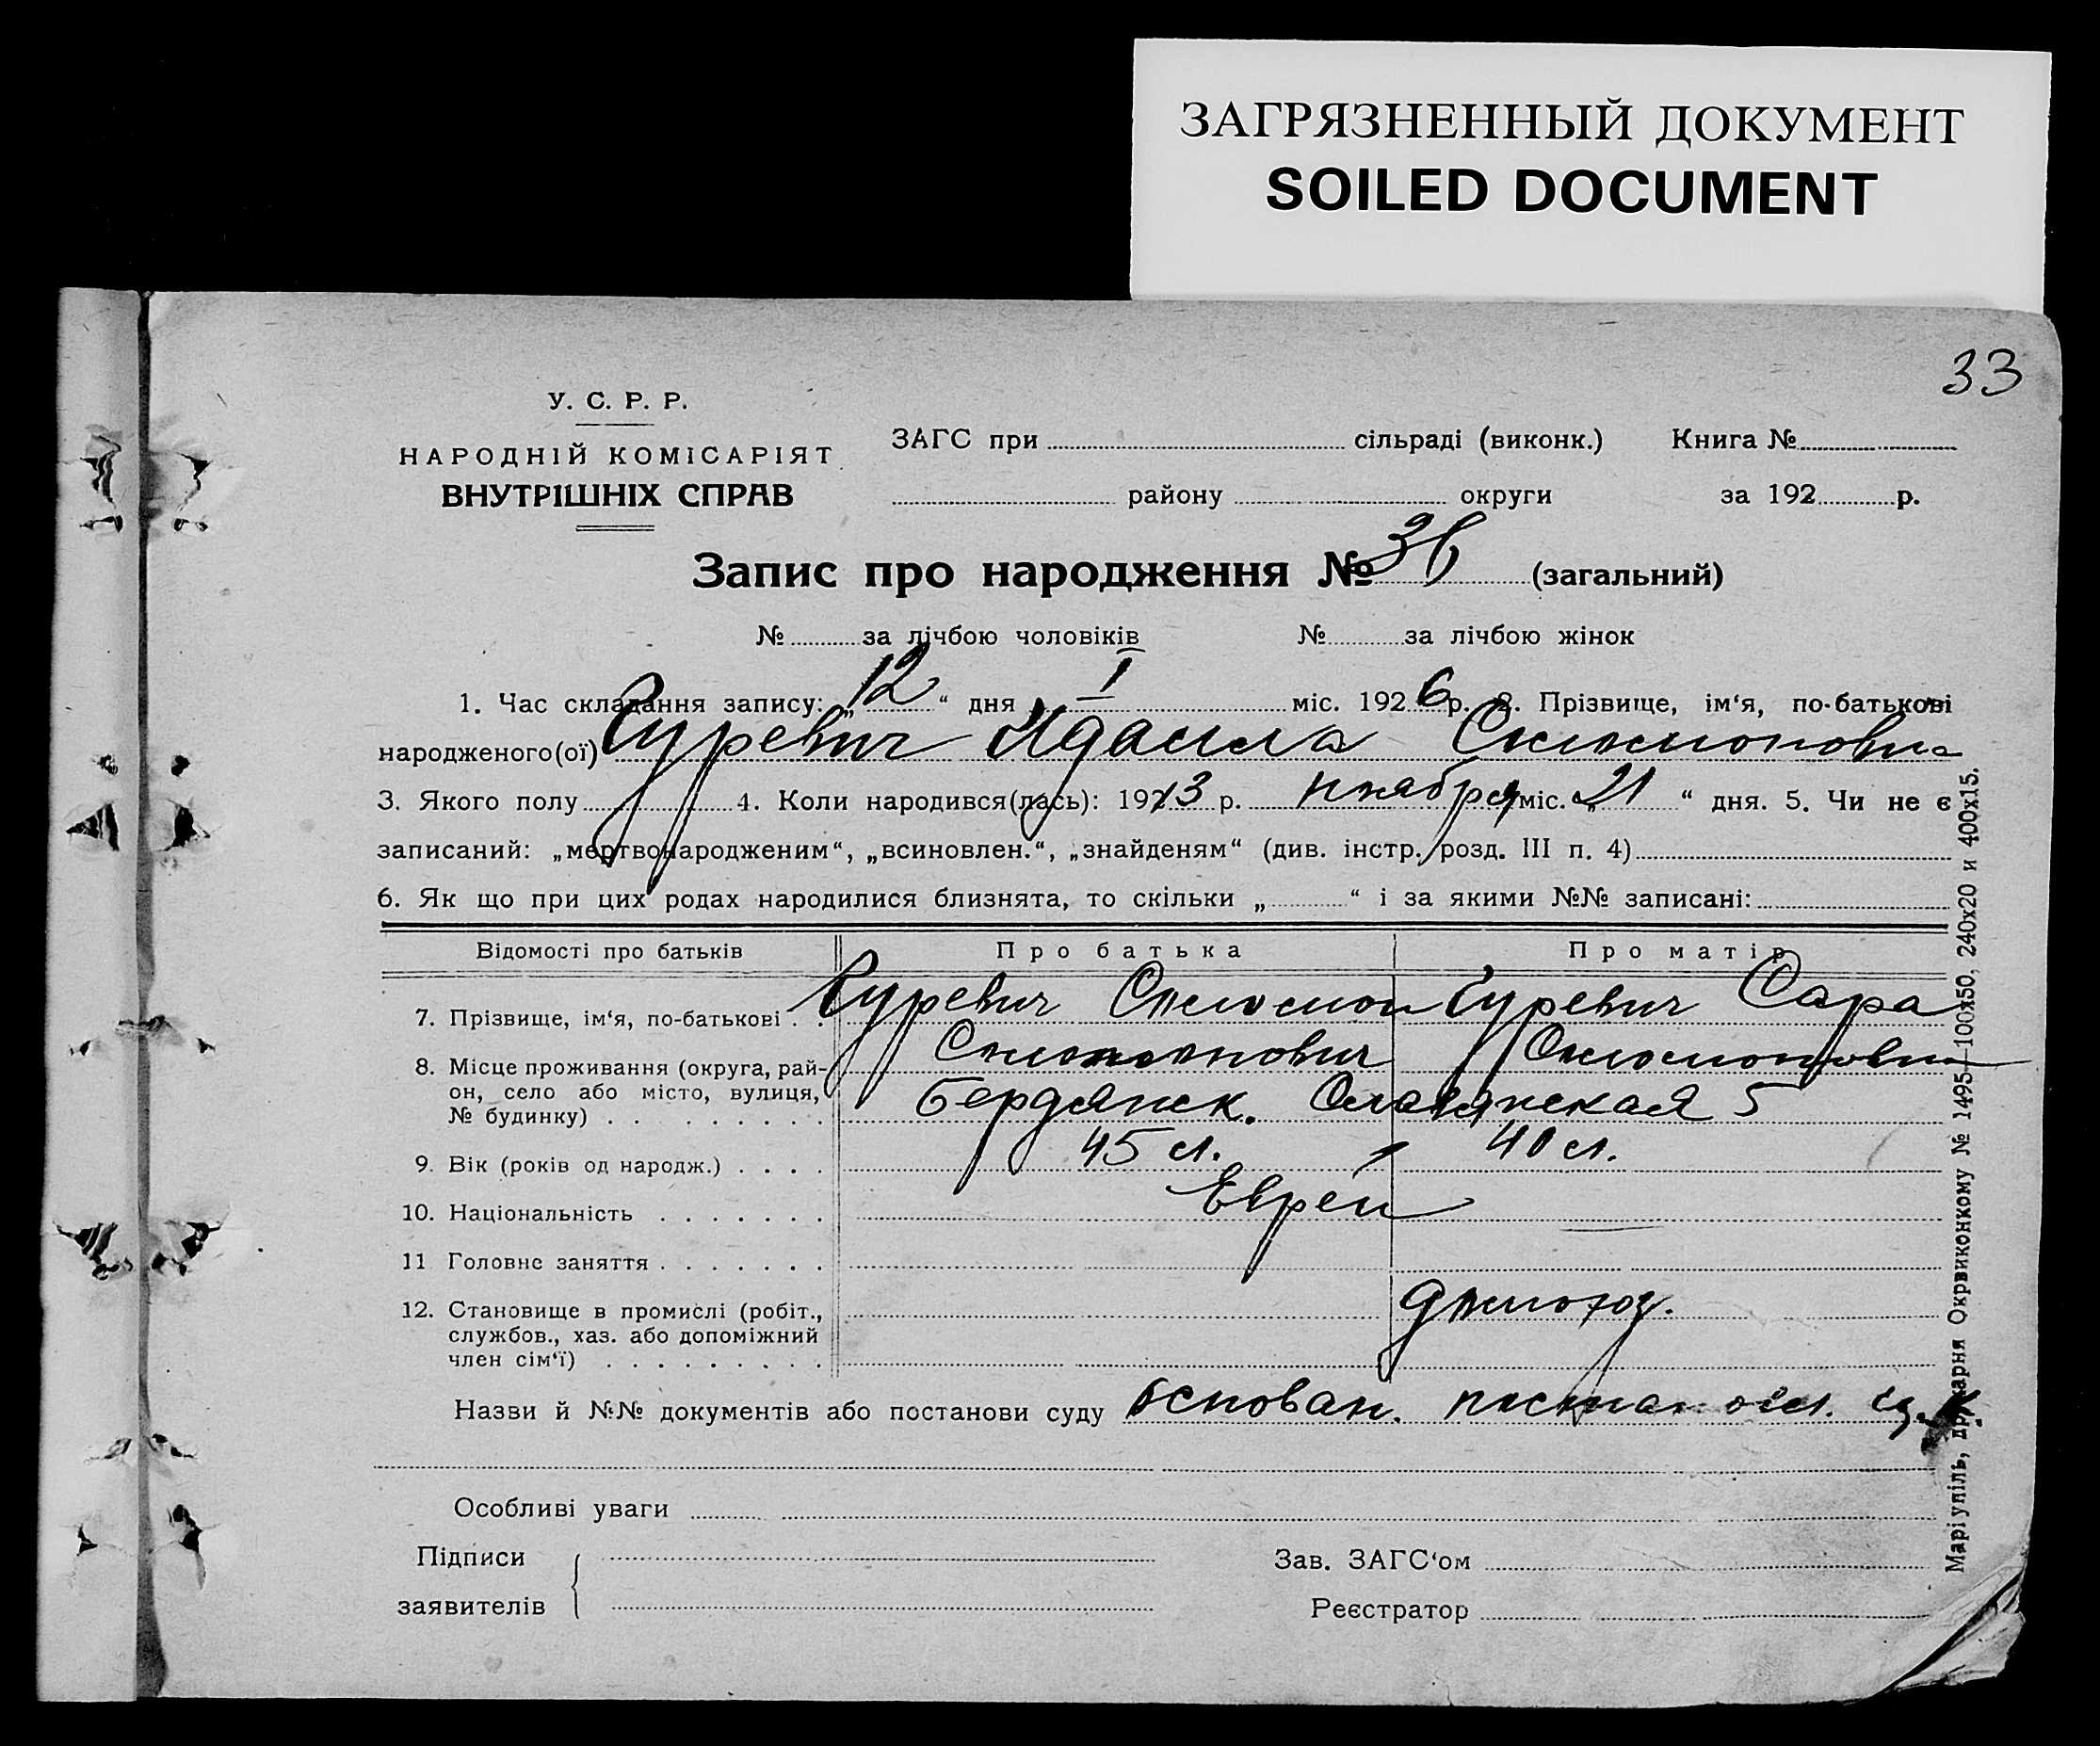 ЗАГРЯЗНЕННЫЙ ДОКУМЕНТ
SOILED DOCUMENT
33
У. С. Р. Р.
НАРОДНІЙ КОМІСАРІЯТ
ВНУТРІШНІХ СПРАВ
ЗАГС при сільраді (виконк.) Книга №
району округи за 192 р.
Запис про народження № 36 (загальний)
№ за лічбою чоловіків № за лічбою жінок
1. Час складання запису: „12“ дня I міс. 1926 р. 2. Прізвище, ім‘я, по-батькові
народженого(ої) Гуревич Соломоновна
3. Якого полу 4. Коли народився(лась): 1913 р. ноября міс. „21“ дня. 5. Чи не є
записаний: „мертвонародженим“, „всиновлен.“, „знайденям“ (див. інстр. розд. III п. 4)
6. Як що при цих родах народилися близнята, то скільки „ “ і за якими №№ записані:
Відомості про батьків Про батька Про матір
7. Прізвище, ім‘я, по-батькові . . Гуревич Соломон Гуревич Сара
Соломонович Соломоновна
8. Місце проживання (округа, рай-
он, село або місто, вулиця,
№ будинку) . . . . . . . . . Бердянск. Славянская 5
9. Вік (років од народж.) . . . . 45 л. 40 л.
10. Національність . . . . . . . Еврей
11 Головне заняття . . . . . . .
12. Становище в промислі (робіт., домохоз.
службов., хаз. або допоміжний
член сім‘ї) . . . . . . . . .
Назви й №№ документів або постанови суду основан.
Особливі уваги
Підписи Зав. ЗАГС‘ом
заявителів Реєстратор
Маріупіль, друкарня Окрвиконкому № 1495—100х50, 240х20 и 400х15.